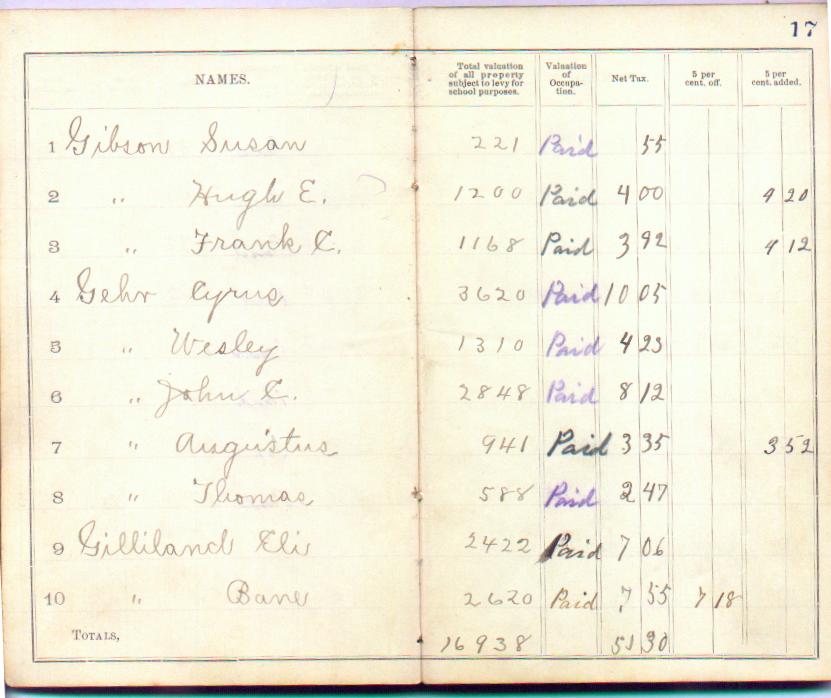 17
NAMES. Total valuation of all property subject to levy for school purposes. Valuation of Occupation. Net Tax. 5 per cent. off. 5 per cent. added.
1 Gibson Susan 221 Paid 55
2 " Hugh E. 1200 Paid 4 00 4 20
3 " Frank C. 1168 Paid 3 92 4 12
4 Gehr Cyrus 3620 Paid 10 05
5 " Wesley 1310 Paid 4 23
6 " John C. 2848 Paid 8 12
7 " Augustus 941 Paid 3 35 3 52
8 " Thomas 588 Paid 2 47
9 Gilliland Eli 2422 Paid 7 06
10 " Bane 2620 Paid 7 55 7 18
TOTALS, 16938 51 30